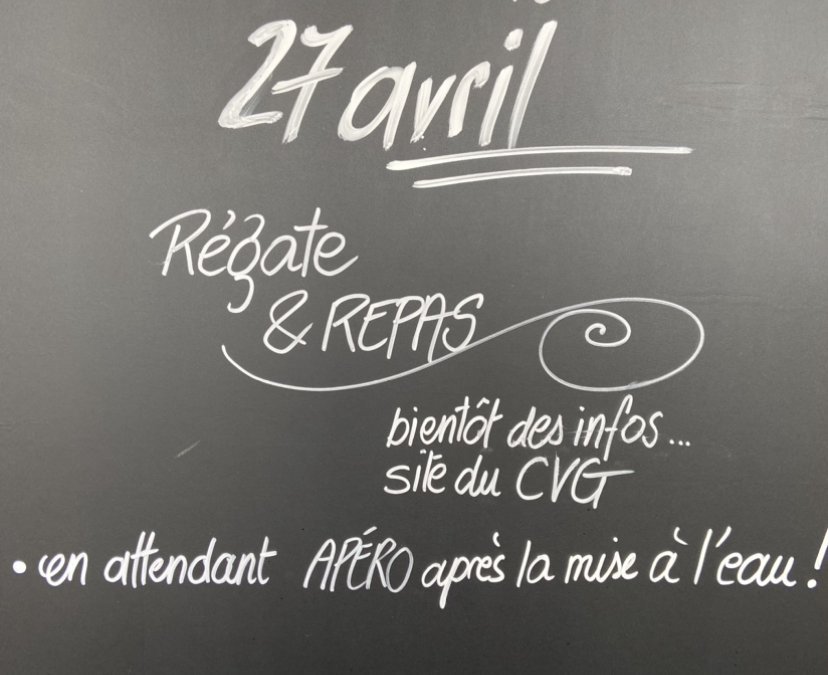 27 avril
Régate
& REPAS
bientôt des infos...
site du CVG
• en attendant APÉRO après la mise à l'eau !